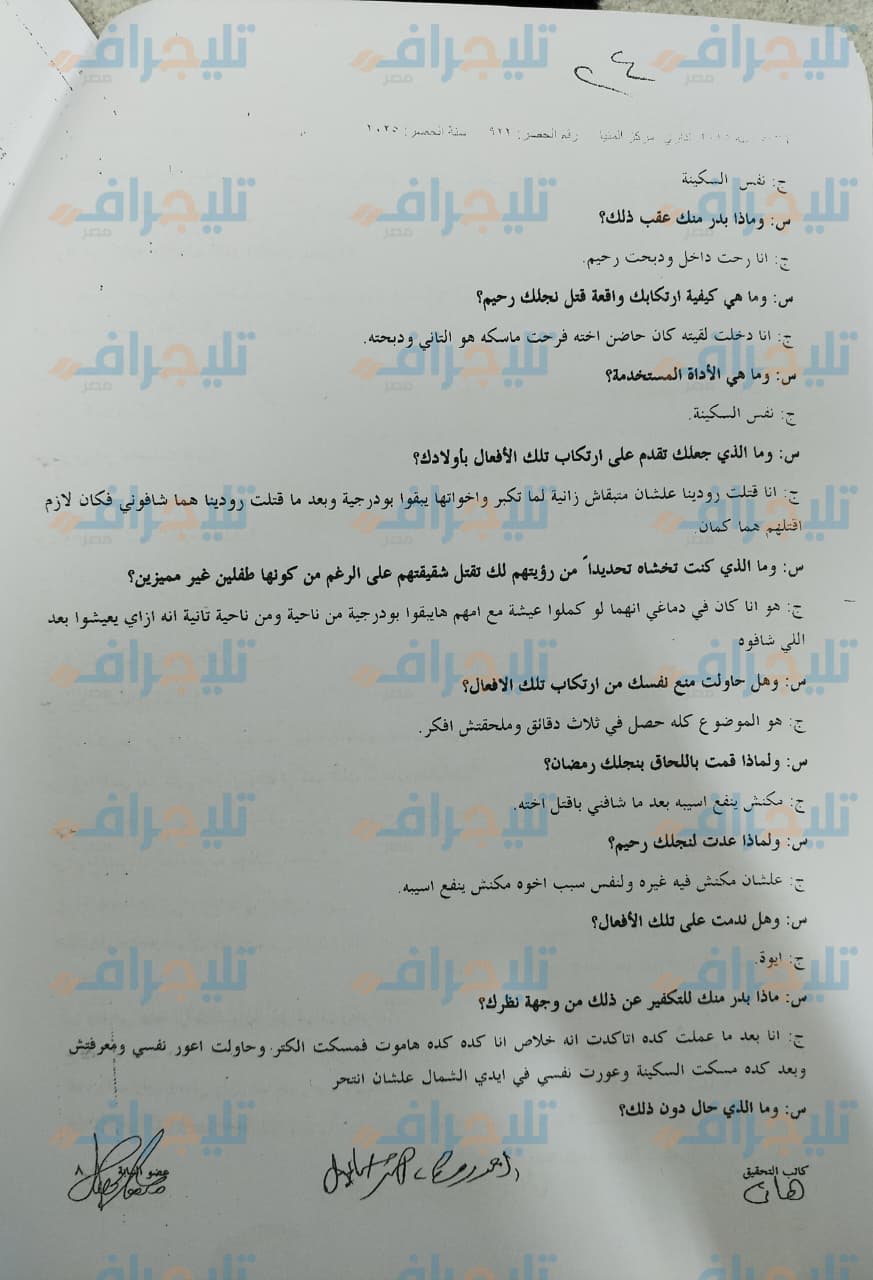 ٢٤
إداري مركز المنيا رقم الحصر: ٩٢٢ سنة الحصر: ٢٠٢٥
ج: نفس السكينة
س: وماذا بدر منك عقب ذلك؟
ج: انا رحت داخل ودبحت رحيم.
س: وما هي كيفية ارتكابك واقعة قتل نجلك رحيم؟
ج: انا دخلت لقيته كان حاضن اخته فرحت ماسكه هو التاني ودبحته.
س: وما هي الأداة المستخدمة؟
ج: نفس السكينة.
س: وما الذي جعلك تقدم على ارتكاب تلك الأفعال بأولادك؟
ج: انا قتلت رودينا علشان متبقاش زانية لما تكبر واخواتها يبقوا بودرجية وبعد ما قتلت رودينا هما شافوني فكان لازم
اقتلهم هما كمان.
س: وما الذي كنت تخشاه تحديداً من رؤيتهم لك تقتل شقيقتهم على الرغم من كونها طفلين غير مميزين؟
ج: هو انا كان في دماغي انهما لو كملوا عيشة مع امهم هايبقوا بودرجية من ناحية ومن ناحية تانية انه ازاي يعيشوا بعد
اللي شافوه
س: وهل حاولت منع نفسك من ارتكاب تلك الافعال؟
ج: هو الموضوع كله حصل في ثلاث دقائق وملحقتش افكر.
س: ولماذا قمت باللحاق بنجلك رمضان؟
ج: مكنش ينفع اسيبه بعد ما شافني باقتل اخته.
س: ولماذا عدت لنجلك رحيم؟
ج: علشان مكنش فيه غيره ولنفس سبب اخوه مكنش ينفع اسيبه.
س: وهل ندمت على تلك الأفعال؟
ج: ايوة.
س: ماذا بدر منك للتكفير عن ذلك من وجهة نظرك؟
ج: انا بعد ما عملت كده اتاكدت انه خلاص انا كده كده هاموت فمسكت الكتر وحاولت اعور نفسي ومعرفتش
وبعد كده مسكت السكينة وعورت نفسي في ايدي الشمال علشان انتحر
س: وما الذي حال دون ذلك؟
كاتب التحقيق
هاني
عضو النيابة
٨
تليجراف مصر